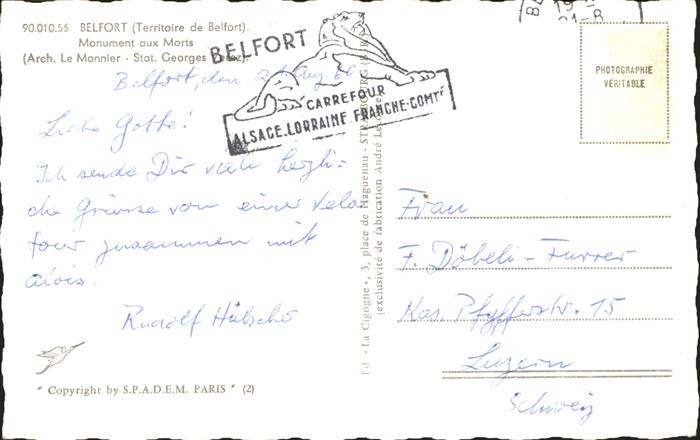 90.010.56 BELFORT (Territoire de Belfort).
Monument aux Morts
(Arch. Le Monnier - Stat. Georges
BELFORT
CARREFOUR
ALSACE.LORRAINE.FRANCHE-COMTÉ
21-8
PHOTOGRAPHIE
VÉRITABLE
Belfort, den 21. Aug. 60
Liebe Gotte!
Ich sende Dir viele herzli-
che Grüsse von einer Velo
tour zusammen mit
Alois.
Rudolf Hübscher
" Copyright by S.P.A.D.E.M. PARIS " (2)
Ed. « La Cigogne », 3, place de Haguenau - STRASBOURG
(exclusivité de fabrication André
Frau
F. Döbeli-Furrer
Kas. Pfyfferstr. 15
Luzern
Schweiz